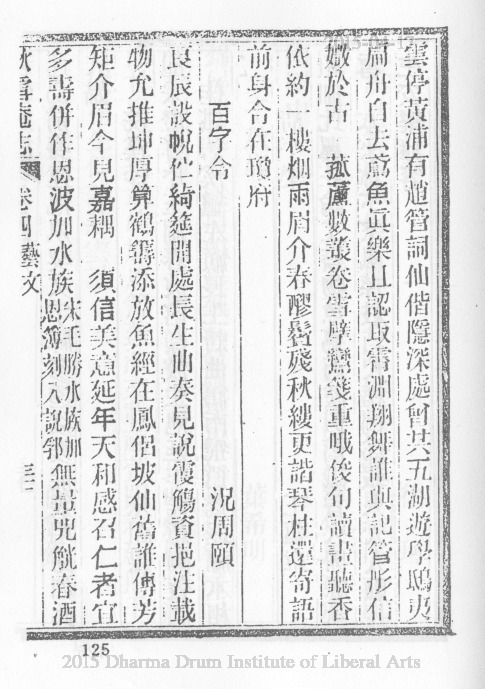 雲停黃浦有趙管詞仙偕隱深處曾共五湖遊學鴟夷
扁舟自去鳶魚眞樂且認取霄淵翔舞誰與記管彤信
媺於古　菰蘆數叢卷雪擘鸞箋重哦俊句讀畫聽香
依約一樓烟雨眉介春醪鬢殘秋縷更諧琴柱還寄語
前身合在瓊府
百字令　況周頤
良辰設帨伫綺筵開處長生曲奏見說霞觴資挹注載
物允推坤厚算鶴籌添放魚經在鳳侶坡仙舊誰傳芳
矩介眉今見嘉耦　須信美意延年天和感召仁者宜
多壽併作恩波加水族宋毛勝水族加恩簿刻入說郛無量兕觥春酒
秋霄菴志　卷四藝文　三二
125
2015 Dharma Drum Institute of Liberal Arts